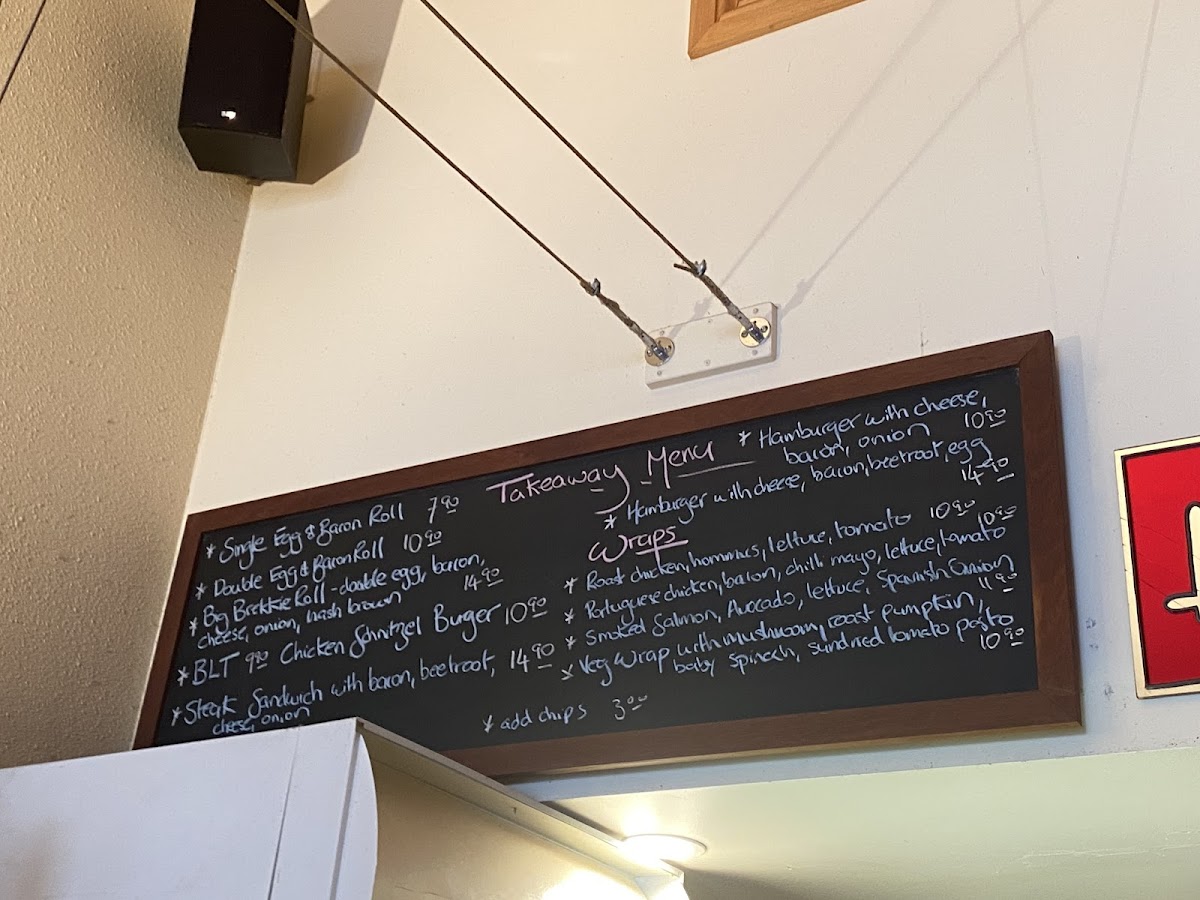 Takeaway Menu
* Single Egg & Bacon Roll 7.90
* Double Egg & Bacon Roll 10.90
* Big Brekkie Roll - double egg, bacon,
cheese, onion, hash brown 14.90
* BLT 9.90 Chicken Schnitzel Burger 10.90
* Steak Sandwich with bacon, beetroot, 14.90
cheese, onion
* Hamburger with cheese,
bacon, onion 10.90
* Hamburger with cheese, bacon, beetroot, egg
14.90
Wraps
* Roast chicken, hommus, lettuce, tomato 10.90
* Portuguese chicken, bacon, chilli mayo, lettuce, tomato 10.90
* Smoked Salmon, Avocado, lettuce, Spanish Onion 11.90
* Veg Wrap with mushroom, roast pumpkin,
baby spinach, sundried tomato pesto
10.90
* add chips 3.00